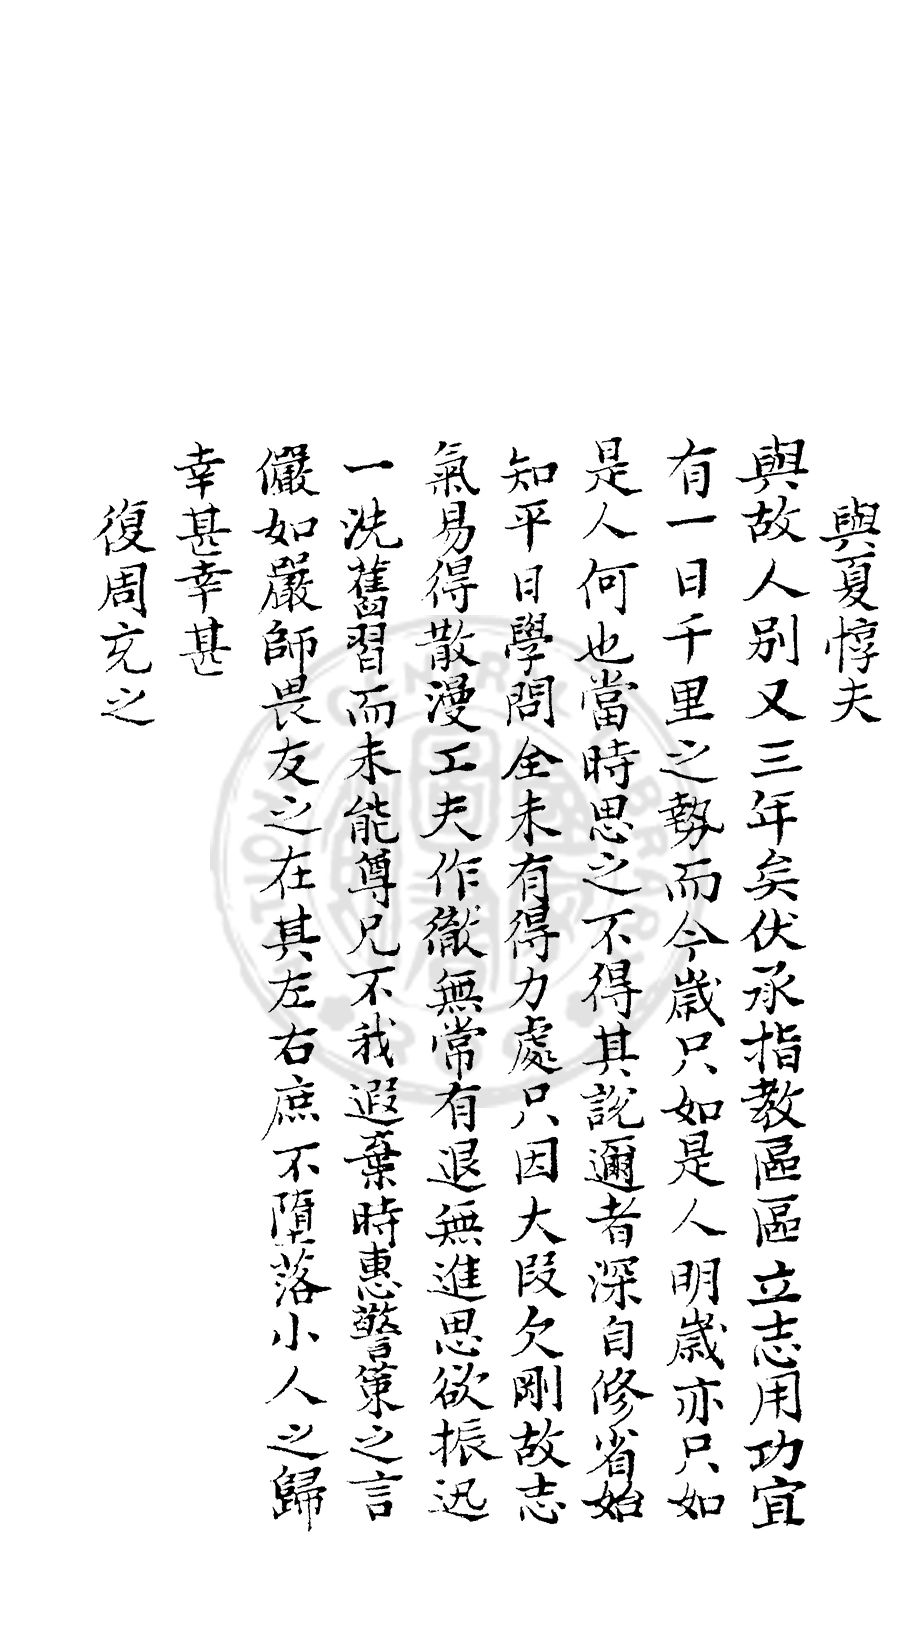 與夏惇夫
與故人別又三年矣伏承指教區區立志用功宜
有一日千里之勢而今歲只如是人明歲亦只如
是人何也當時思之不得其說邇者深自修省始
知平日學問全未有得力處只因大段欠剛故志
氣易得散漫工夫作徹無常有退無進思欲振迅
一洗舊習而未能尊兄不我遐棄時惠警策之言
儼如嚴師畏友之在其左右庶不墮落小人之歸
幸甚幸甚
復周充之